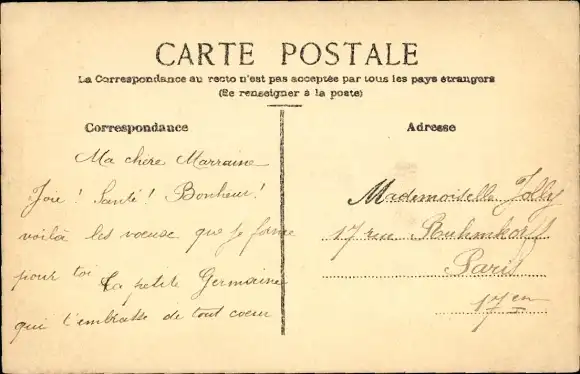 CARTE POSTALE
La Correspondance au recto n'est pas acceptée par tous les pays étrangers
(Se renseigner à la poste)
Correspondance
Adresse
Ma chère Marraine
Joie ! Santé ! Bonheur !
voilà les vœuxe que je forme
pour toi Ta petite Germaine
qui t'embrasse de tout coeur
Mademoiselle Jolly
17 rue Ruhmkorff
Paris
17en